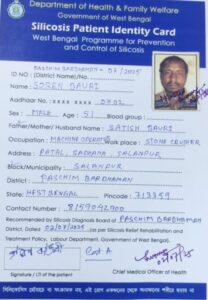 Department of Health & Family Welfare
Government of West Bengal
Silicosis Patient Identity Card
West Bengal Programme for Prevention
and Control of Silicosis
PASCHIM BARDHAMAN - 07 / 2025
ID.NO : (District Name/No.)
Name : SOREN BAURI
Aadhar No: xxxx xxxx 0702
Sex : MALE Age : 51 Blood group :
Father/Mother/Husband Name : SATISH BAURI
Occupation : MACHINE OPERATOR Work place : STONE CRUSHER
Address : PATAL, SALANPUR
Block/Municipality : SALANPUR
District : PASCHIM BARDHAMAN
State : WEST BENGAL Pincode : 713359
Contact Number : 8159042900
Recommended by Silicosis Diagnosis Board of PASCHIM BARDHAMAN
District, Dated (as per Silicosis Relief Rehabilitation and
Treatment Policy, Labour Department, Government of West Bengal).
Signature / LTI of the patient Chief Medical Officer of Health